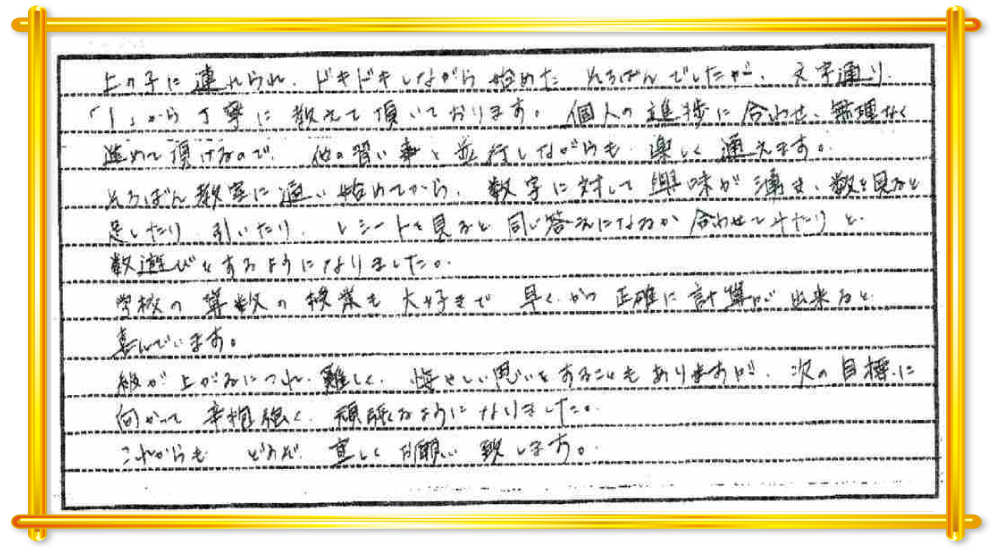 上の子に連れられ、ドキドキしながら始めたそろばんでしたが、文字通り
「1」から丁寧に教えて頂いております。個人の進捗に合わせ、無理なく
進めて頂けるので、他の習い事と並行しながらも、楽しく通えます。
そろばん教室に通い始めてから、数字に対して興味が湧き、数を見ると
足したり、引いたり、レシートを見ると同じ答えになるか合わせてみたりと、
数遊びをするようになりました。
学校の算数の授業も大好きで、早く、かつ正確に計算が出来ると
喜んでいます。
級が上がるにつれ、難しく、悔しい思いをすることもありますが、次の目標に
向かって辛抱強く、頑張るようになりました。
これからもどうぞ宜しくお願い致します。